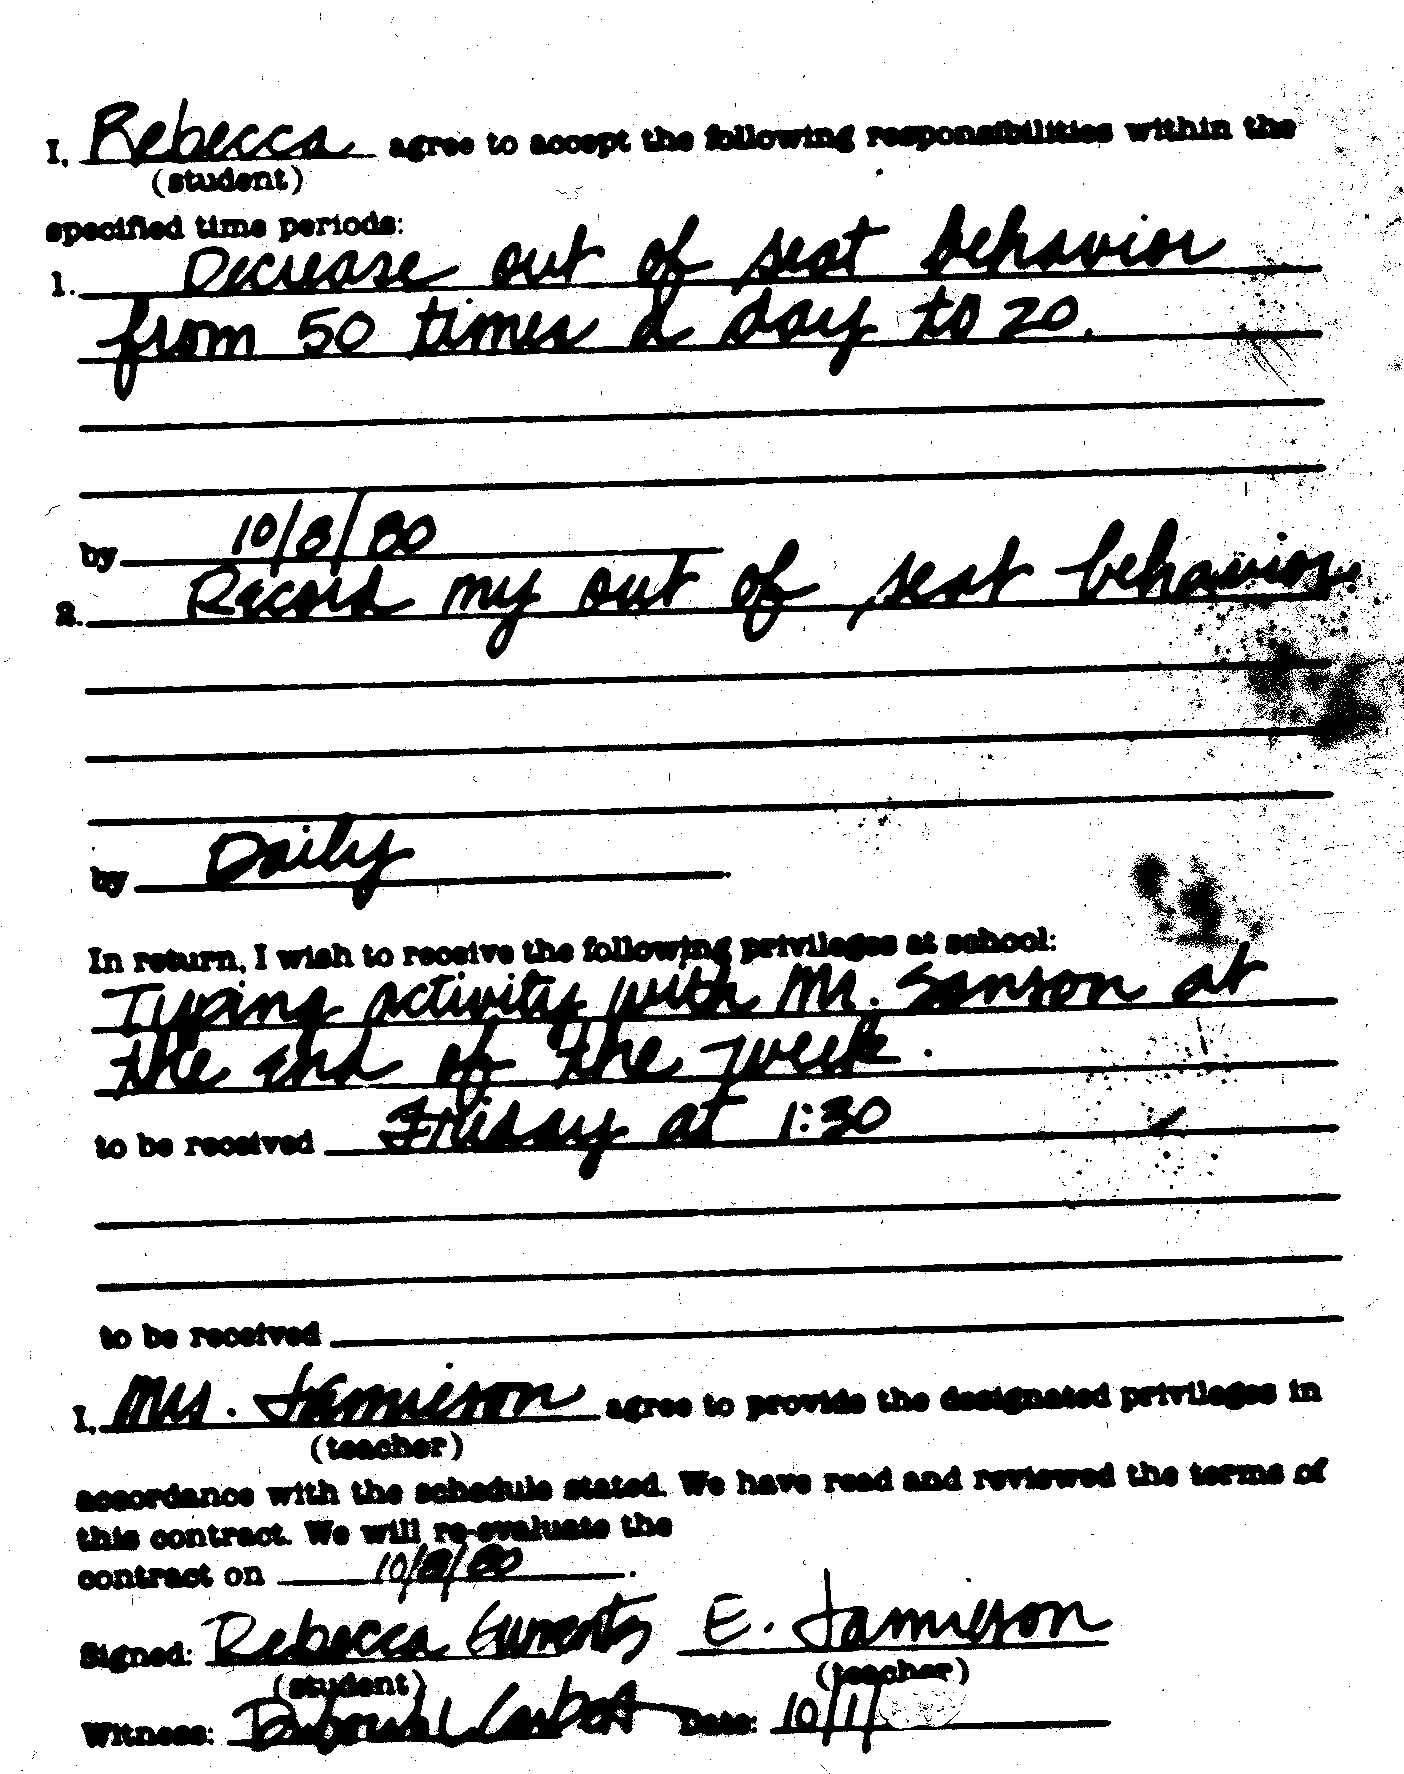 I, Rebecca agree to accept the following responsibilities within the
(student)
specified time periods:
1. Decrease out of seat behavior
from 50 times a day to 20.
by 10/8/80
2. Record my out of seat behavior.
by Daily
In return, I wish to receive the following privileges at school:
Typing activity with Mr. Sanson at
the end of the week.
to be received Friday at 1:30
to be received
I, Mrs. Jamieson agree to provide the designated privileges in
(teacher)
accordance with the schedule stated. We have read and reviewed the terms of
this contract. We will re-evaluate the
contract on 10/8/80.
Signed: Rebecca E. Jamieson
(student) (teacher)
Witness: Deborah Date: 10/1/